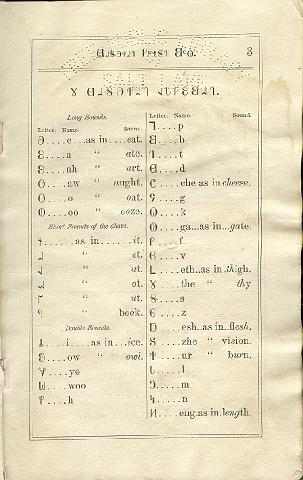 𐐔𐐇𐐝𐐀𐐡𐐇𐐓 𐐙𐐊𐐡𐐝𐐓 𐐒𐐋𐐗. 3
SALT LAKE
𐐜 𐐔𐐇𐐝𐐀𐐡𐐇𐐓 𐐈𐐢𐐙𐐁𐐒𐐇𐐓.
Long Sounds.
Letter. Name. Sound.
𐐀....e...as in....eat.
𐐁....a " ate.
𐐂....ah " art.
𐐃....aw " aught.
𐐄....o " oat.
𐐅....oo " ooze.
Short Sounds of the above.
𐐆......as in.....it.
𐐇 " et.
𐐈 " at.
𐐉 " ot.
𐐊 " ut.
𐐋 " book.
Double Sounds.
𐐌....i....as in...ice.
𐐍....ow " owl.
𐐏....ye
𐐎....woo
𐐐....h
Letter. Name. Sound.
𐐑....p
𐐒....b
𐐓....t
𐐔....d
𐐕....che as in cheese.
𐐖....g
𐐗....k
𐐘....ga...as in...gate.
𐐙....f
𐐚....v
𐐛....eth..as in.thigh.
𐐜....the " thy
𐐝....s
𐐞....z
𐐟....esh.as in..flesh.
𐐠....zhe " vision.
𐐡....ur " burn.
𐐢....l
𐐣....m
𐐤....n
𐐥....eng.as in.length.